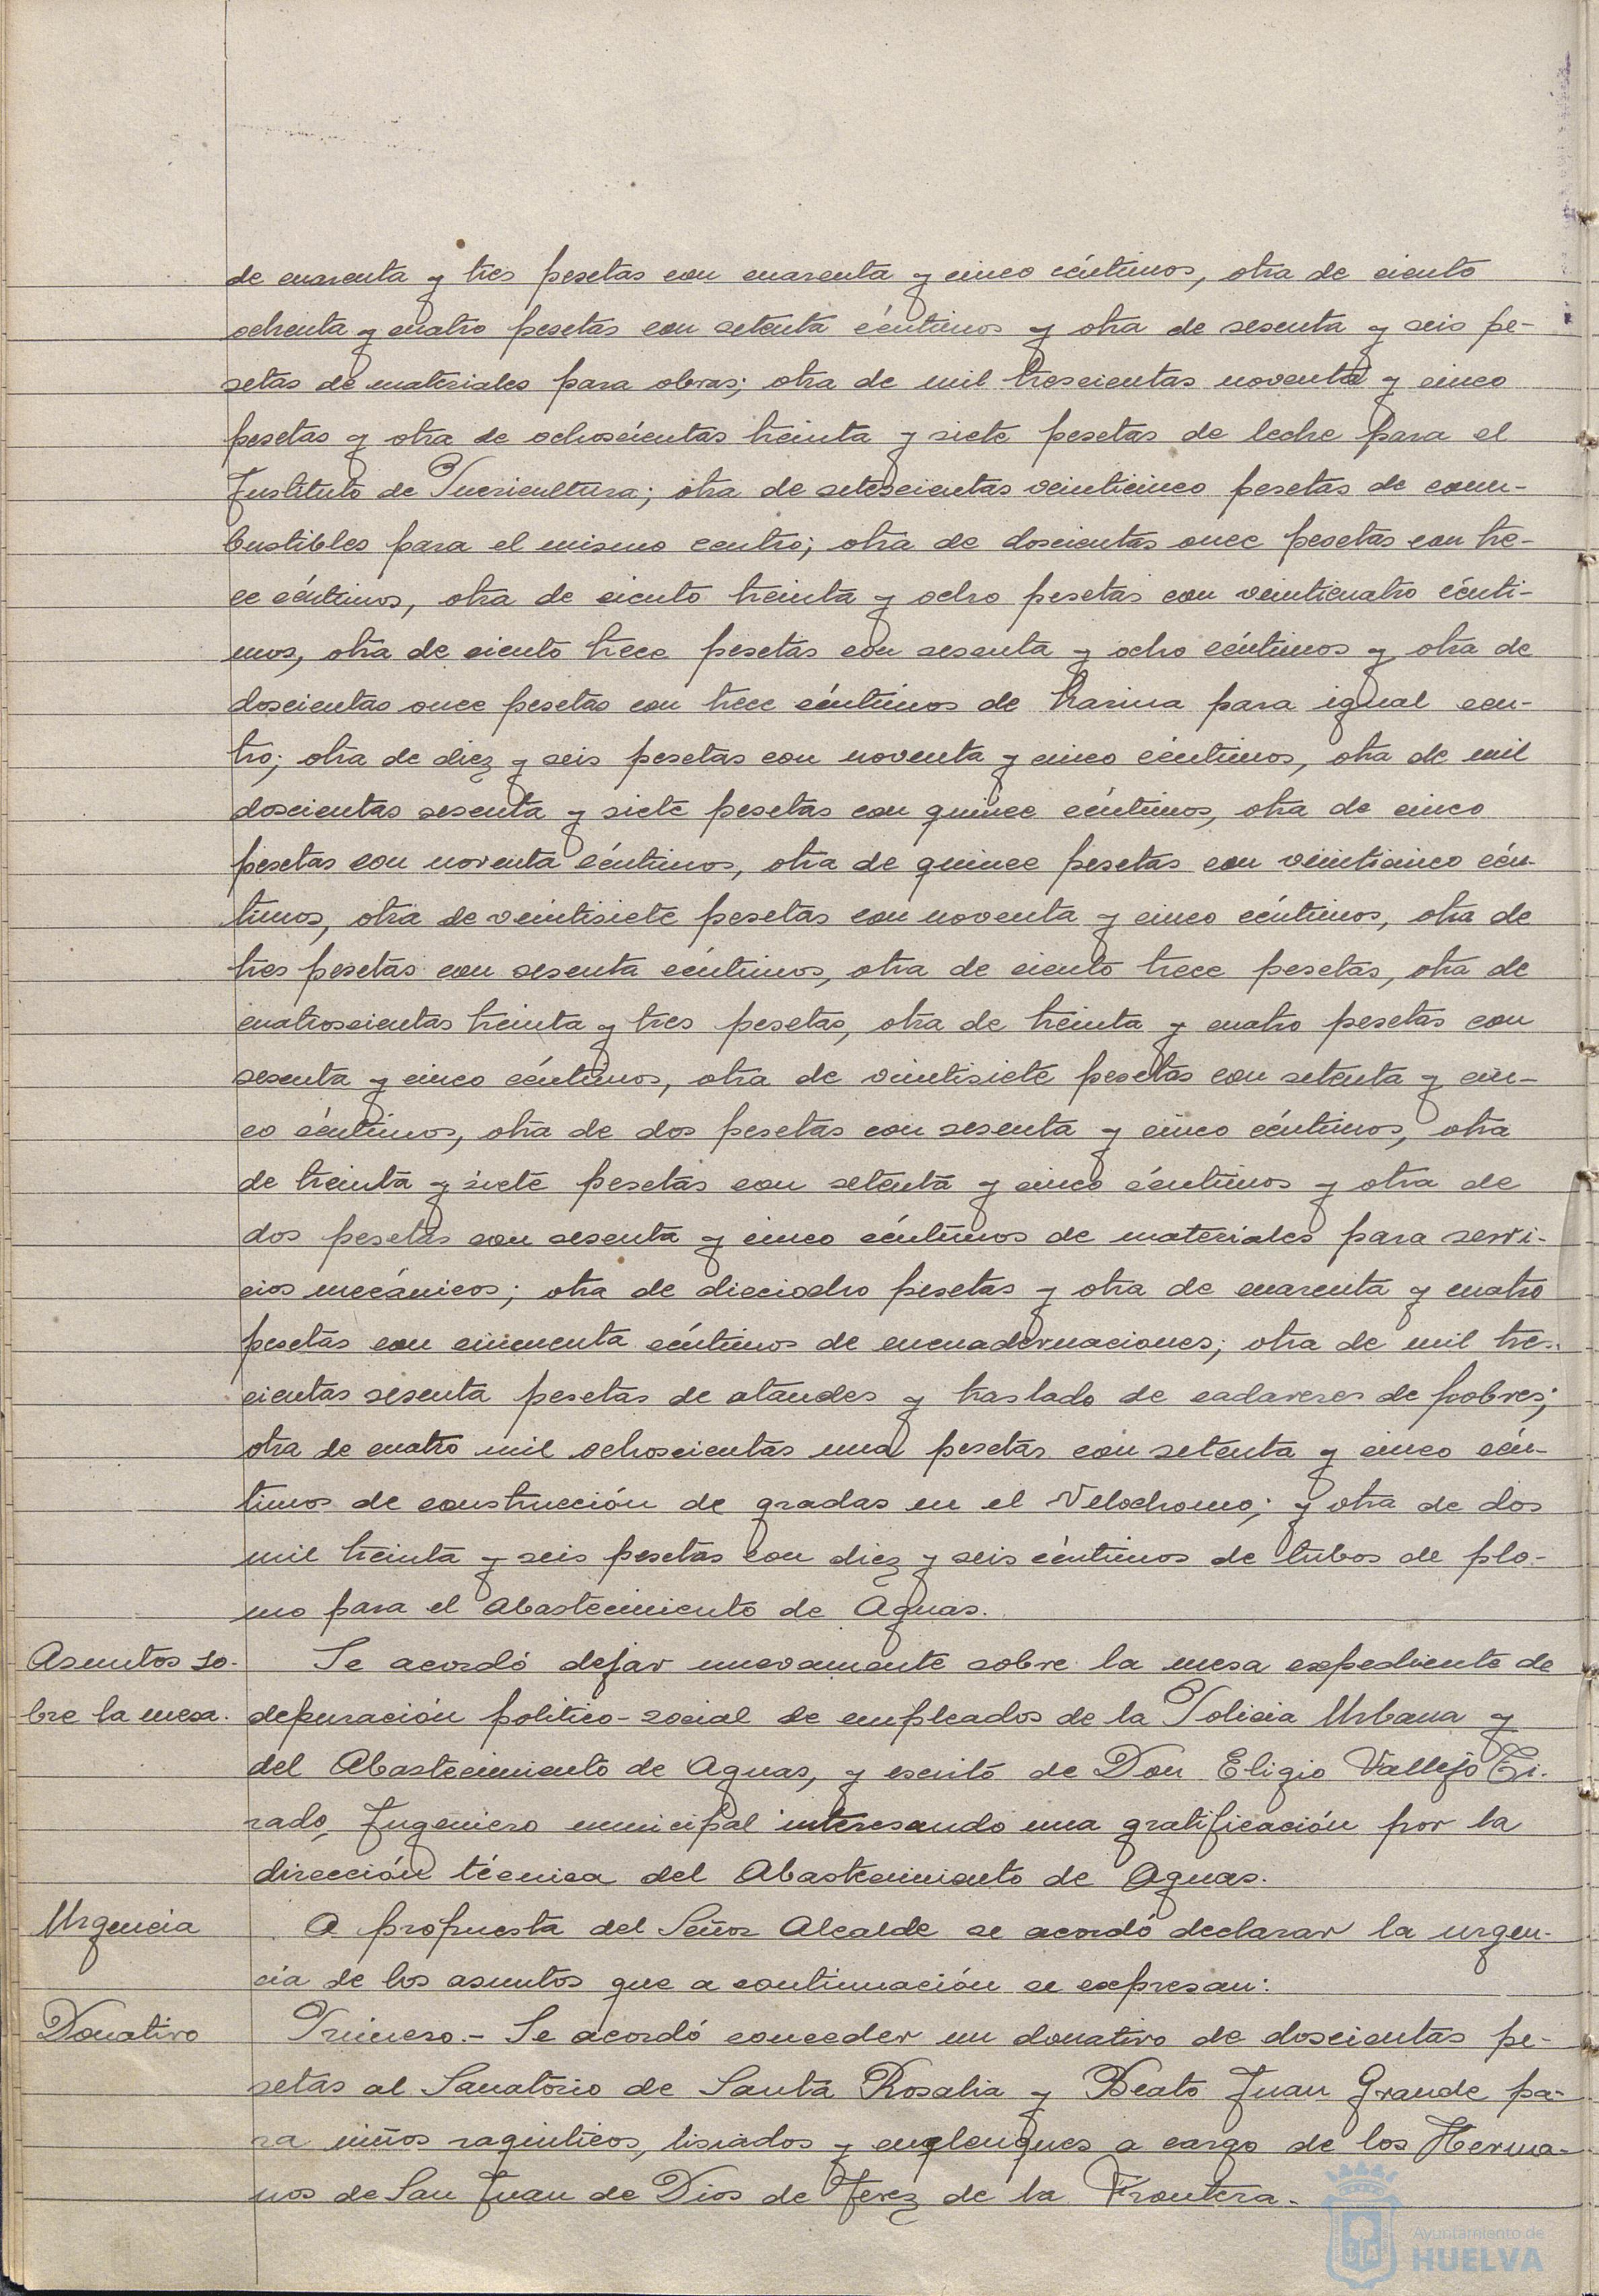 de cuarenta y tres pesetas con cuarenta y cinco céntimos, otra de ciento
ochenta y cuatro pesetas con setenta céntimos y otra de sesenta y seis pe-
setas de materiales para obras; otra de mil trescientas noventa y cinco
pesetas y otra de ochocientas treinta y siete pesetas de leche para el
Instituto de Puericultura; otra de setescientas veinticinco pesetas de com-
bustibles para el mismo centro; otra de doscientas once pesetas con tre-
ce céntimos, otra de ciento treinta y ocho pesetas con veinticuatro cénti-
mos, otra de ciento trece pesetas con sesenta y ocho céntimos y otra de
doscientas once pesetas con trece céntimos de harina para igual cen-
tro; otra de diez y seis pesetas con noventa y cinco céntimos, otra de mil
doscientas sesenta y siete pesetas con quince céntimos, otra de cinco
pesetas con noventa céntimos, otra de quince pesetas con veinticinco cén-
timos, otra de veintisiete pesetas con noventa y cinco céntimos, otra de
tres pesetas con sesenta céntimos, otra de ciento trece pesetas, otra de
cuatroscientas treinta y tres pesetas, otra de treinta y cuatro pesetas con
sesenta y cinco céntimos, otra de veintisiete pesetas con setenta y cin-
co céntimos, otra de dos pesetas con sesenta y cinco céntimos, otra
de treinta y siete pesetas con setenta y cinco céntimos y otra de
dos pesetas con sesenta y cinco céntimos de materiales para servi-
cios mecánicos; otra de dieciocho pesetas y otra de cuarenta y cuatro
pesetas con cincuenta céntimos de encuadernaciones; otra de mil tres-
cientas sesenta pesetas de ataudes y traslado de cadaveres de pobres;
otra de cuatro mil ochoscientas una pesetas con setenta y cinco cén-
timos de construcción de gradas en el Velodromo; y otra de dos
mil treinta y seis pesetas con diez y seis céntimos de tubos de plo-
mo para el Abastecimiento de Aguas.
Asuntos so- Se acordó dejar nuevamente sobre la mesa expediente de
bre la mesa. depuración politico-social de empleados de la Policia Urbana y
del Abastecimiento de Aguas, y escrito de Don Eligio Vallejo Ti-
rado, Ingeniero municipal interesando una gratificación por la
dirección técnica del Abastecimiento de Aguas.
Urgencia A propuesta del Señor Alcalde se acordó declarar la urgen-
cia de los asuntos que a continuación se expresan:
Donativo Primero.- Se acordó conceder un donativo de doscientas pe-
setas al Sanatorio de Santa Rosalia y Beato Juan Grande pa-
ra niños raquiticos, lisiados y enclenques a cargo de los Herma-
nos de San Juan de Dios de Jerez de la Frontera.
Ayuntamiento de
HUELVA